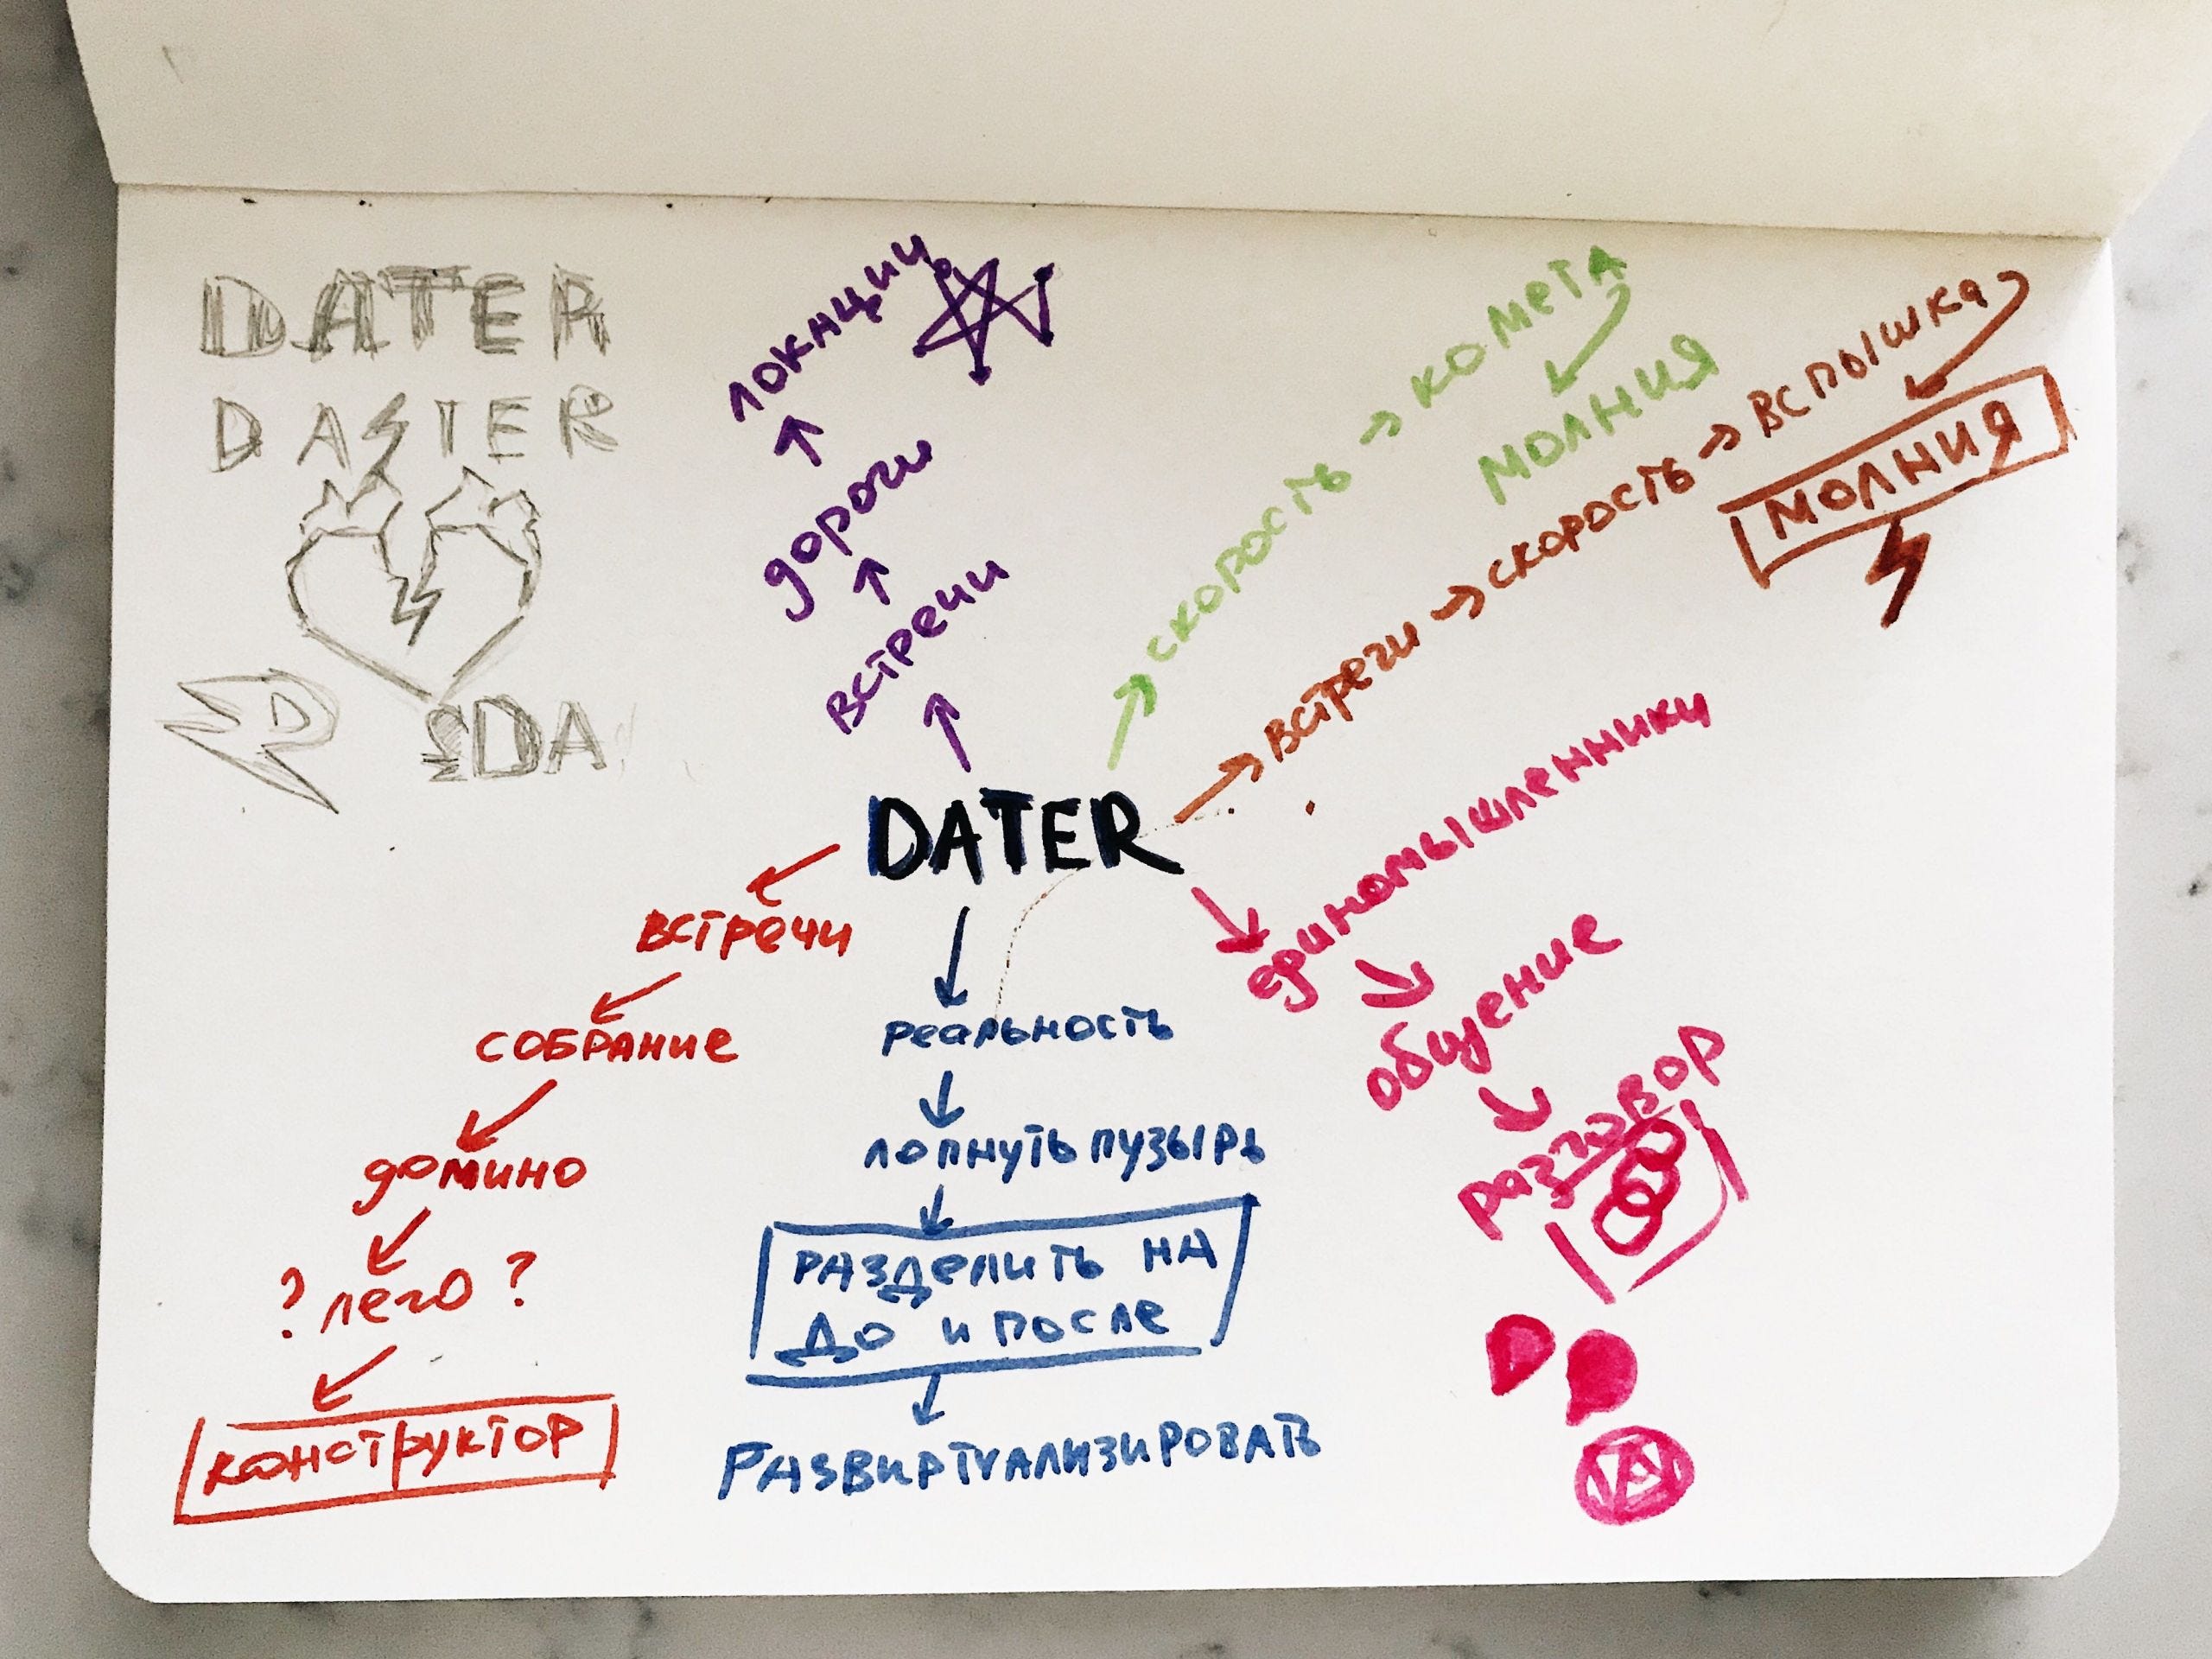 DATER
DA⚡TER
D
DA
локации
↑
дороги
↑
встречи
↑
→ скорость → комета
молния
→ встречи → скорость → вспышка
молния
DATER
встречи
собрание
домино
? лего ?
конструктор
реальность
лопнуть пузырь
РАЗДЕЛИТЬ НА
ДО И ПОСЛЕ
РАЗВИРТУАЛИЗИРОВАТЬ
единомышленники
общение
разговор